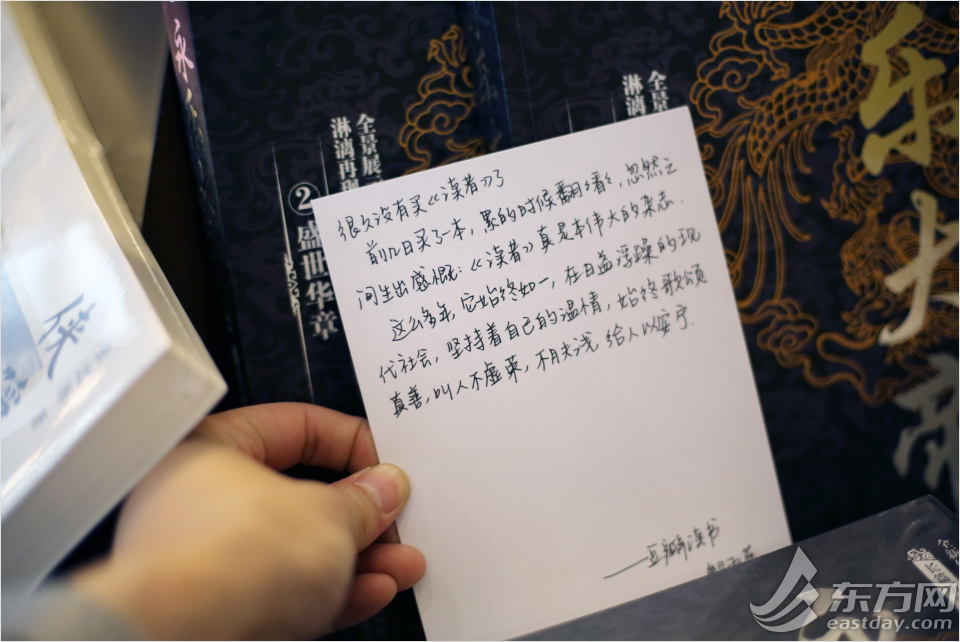 很久没有买《读者》了
前几日买了一本，累的时候翻看看，忽然之
间生出感慨：《读者》真是本伟大的杂志.
这么多年，它始终如一，在日益浮躁的现
代社会，坚持着自己的温情，始终歌颂
真善，叫人不虚荣，不肤浅 给人以安宁.
——豆瓣读书
全景展
淋漓再现
②盛世华章
全景
淋漓
永
乐大帝
东方网
eastday.com